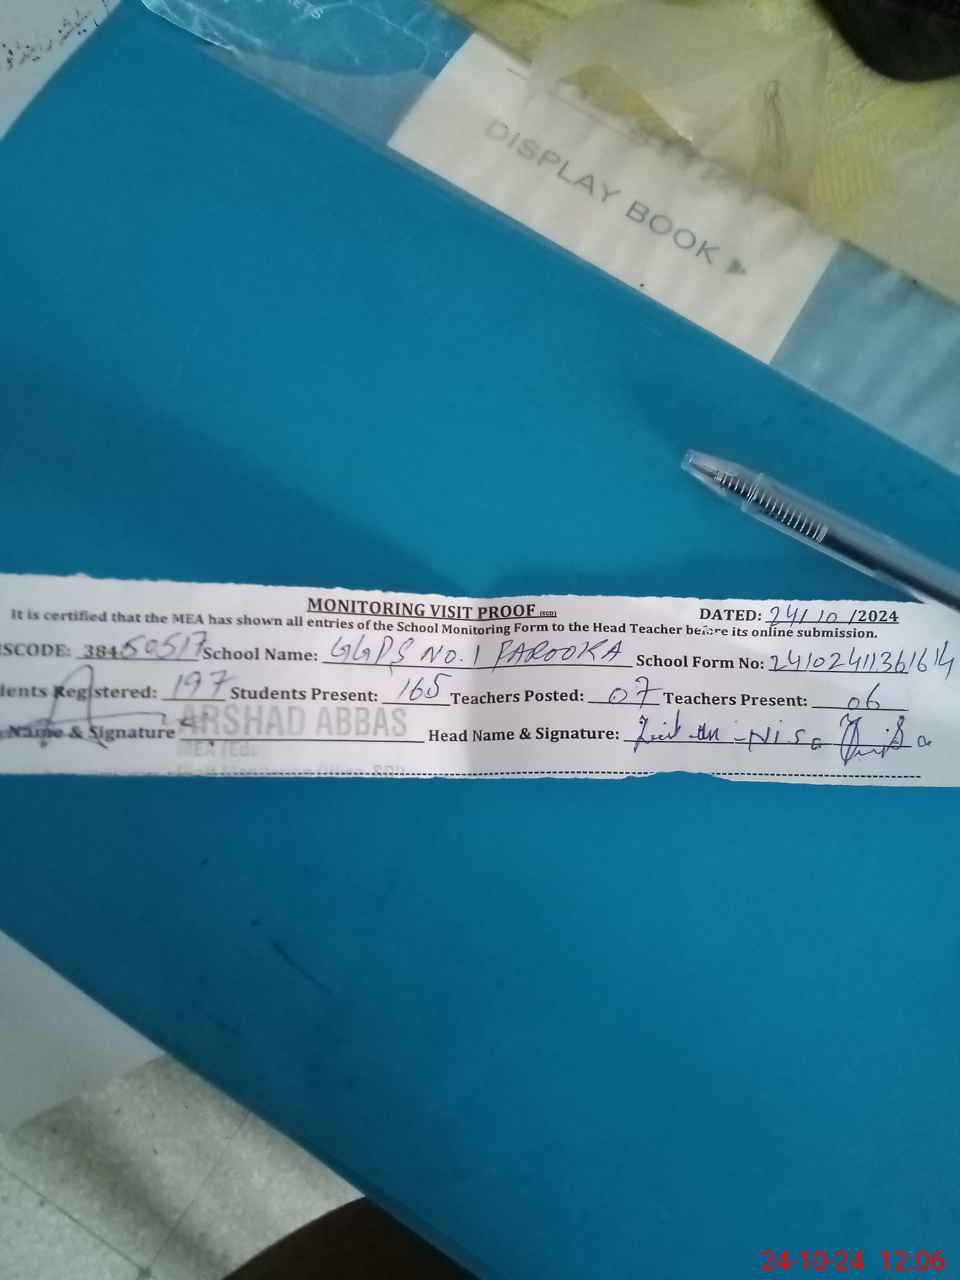 DISPLAY BOOK
MONITORING VISIT PROOF (SGD) DATED: 24/10/2024
It is certified that the MEA has shown all entries of the School Monitoring Form to the Head Teacher before its online submission.
SCODE: 38450517 School Name: GGPS NO.1 FAROOKA School Form No: 24102411361614
ents Registered: 197 Students Present: 165 Teachers Posted: 07 Teachers Present: 06
Name & Signature ARSHAD ABBAS Head Name & Signature: -Nisa
24-10-24 12:06